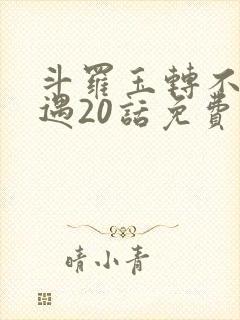 斗羅玉轉不
遇20話免費
晴小青